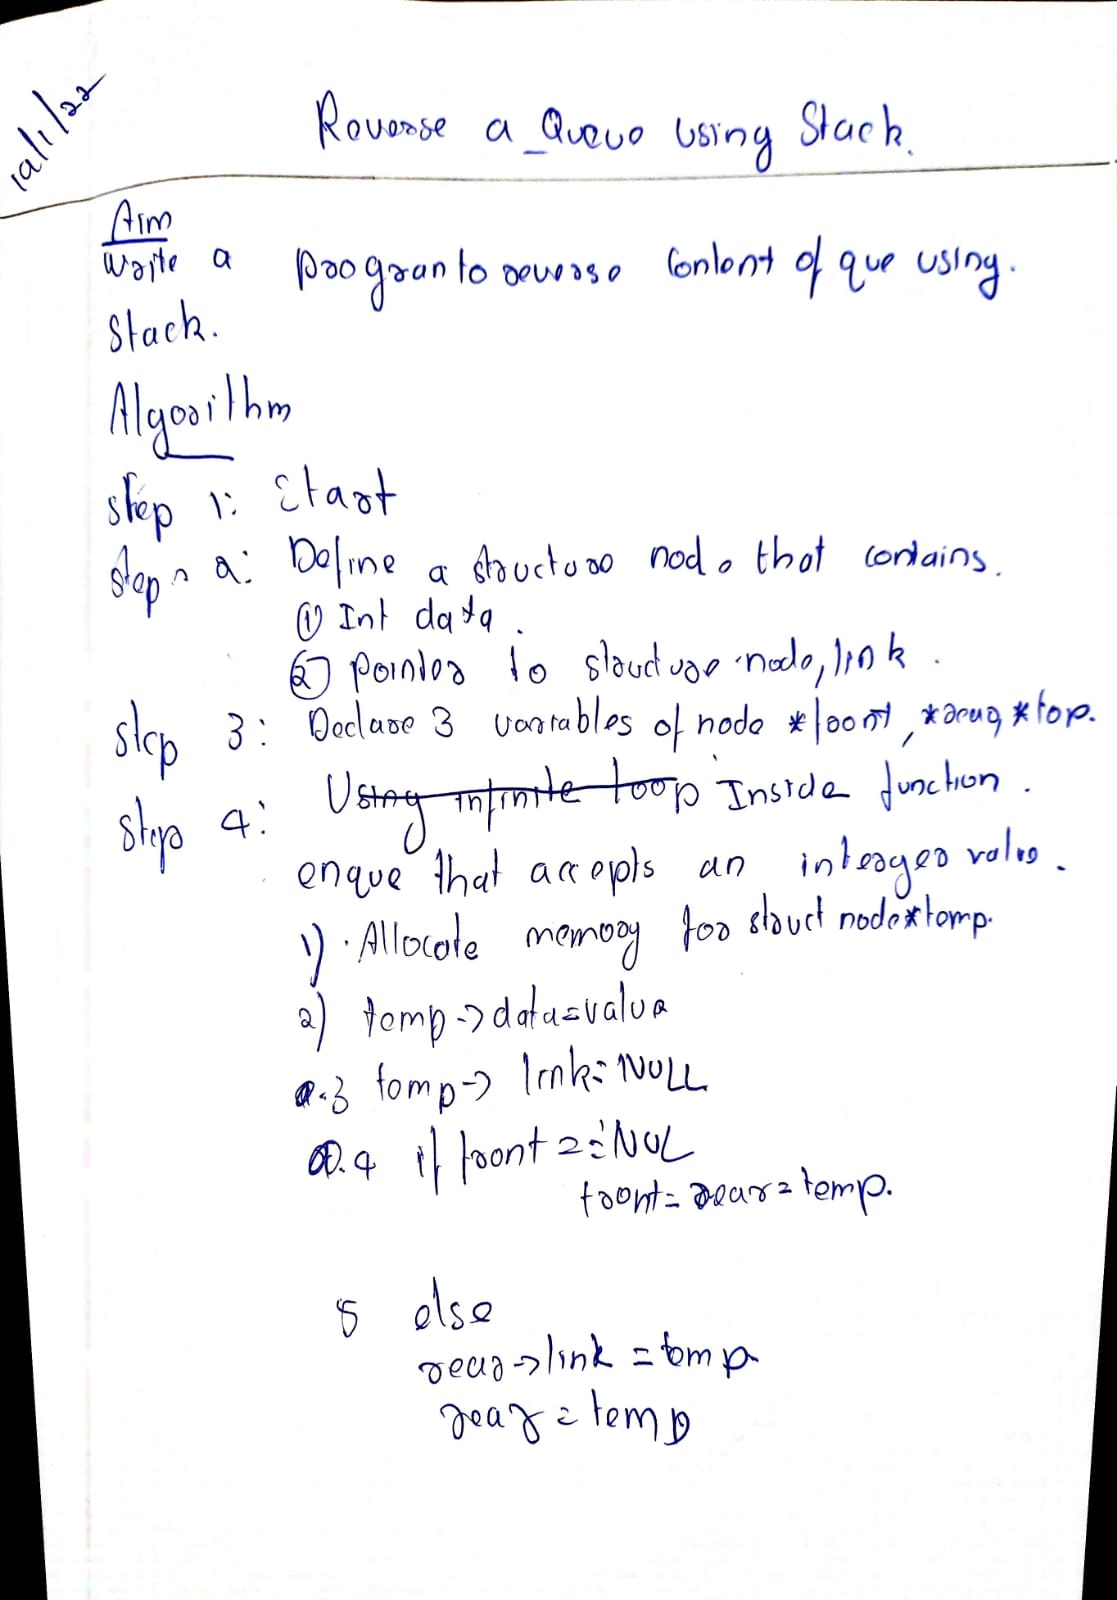 12/1/22
Reverse a Queue Using Stack.
Aim
Write a program to reverse Content of que using.
Stack.
Algorithm
step 1: Start
step 2: Define a structure node that contains.
① Int data.
② pointer to structure node, link.
step 3: Declare 3 variables of node *front, *rear, *top.
Step 4: Using infinite loop Inside function.
enque that accepts an integer value.
1) . Allocate memory for struct node *temp.
2) temp->data=value
.3 temp-> link=NULL
.4 if front == NUL
front= rear= temp.
5 else
rear->link = temp
rear = temp